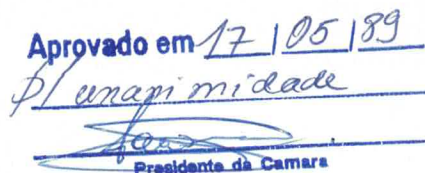 Aprovado em 17 | 05 | 89
p/ unanimidade
Presidente da Camara